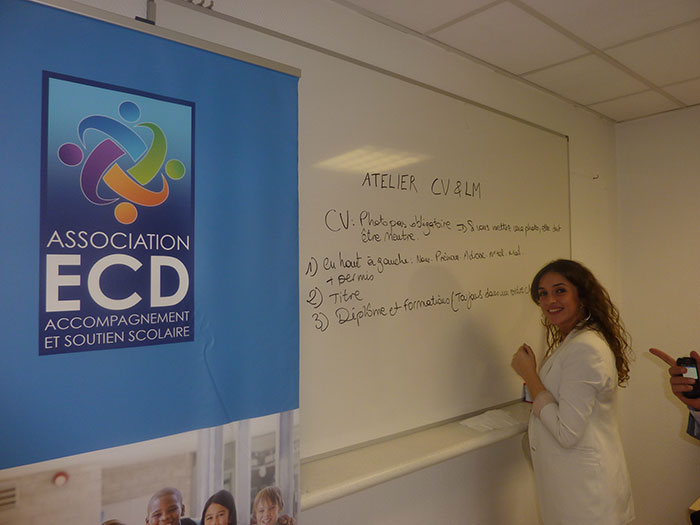 ASSOCIATION
ECD
ACCOMPAGNEMENT
ET SOUTIEN SCOLAIRE
ATELIER CV & LM
CV : Photo pas obligatoire → Si vous mettez une photo, elle doit
être neutre.
1) En haut à gauche : Nom - Prénom - Adresse
+ Permis
2) Titre
3) Diplôme et formations (Toujours dans